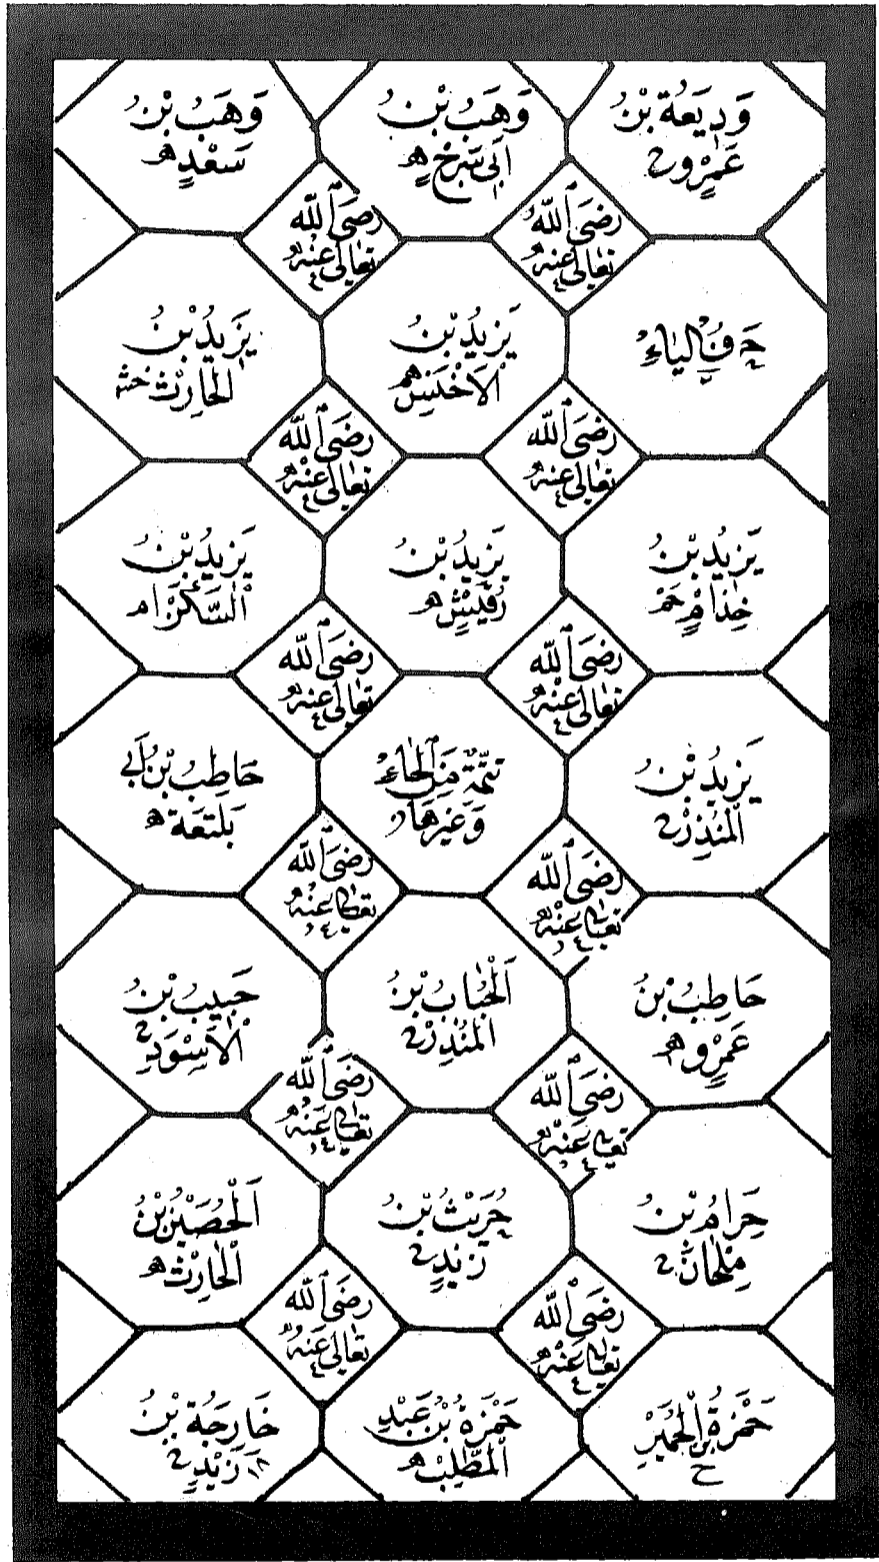 وَدِيعَةُ بْنُ
عَمْرٍو خ
وَهَبُ بْنُ
اَبِى سَرْحٍ ه
وَهَبُ بْنُ
سَعْدٍ ه
رَضِىَ ٱللّٰه
تعَالٰى عَنْهُ
رَضِىَ ٱللّٰه
تعَالٰى عَنْهُ
حَرْفُ الْيَاءِ
يَزِيدُ بْنُ
الْاَخْنَسِ ه
يَزِيدُ بْنُ
الْحَارِثِ
رَضِىَ ٱللّٰه
تعَالٰى عَنْهُ
رَضِىَ ٱللّٰه
تعَالٰى عَنْهُ
يَزِيدُ بْنُ
خِذَامٍ
يَزِيدُ بْنُ
رُقَيْشٍ ه
يَزِيدُ بْنُ
السَّكَنِ
رَضِىَ ٱللّٰه
تعَالٰى عَنْهُ
رَضِىَ ٱللّٰه
تعَالٰى عَنْهُ
يَزِيدُ بْنُ
الْمُنْذِرِ خ
تَتِمَّةٌ مِنَ الْحَاءِ
وَغَيْرِهَا
حَاطِبُ بْنُ اَبِى
بَلْتَعَةَ ه
رَضِىَ ٱللّٰه
تعَالٰى عَنْهُ
رَضِىَ ٱللّٰه
تعَالٰى عَنْهُ
حَاطِبُ بْنُ
عَمْرٍو ه
اَلْحُبَابُ بْنُ
الْمُنْذِرِ خ
حَبِيبُ بْنُ
الْاَسْوَدِ خ
رَضِىَ ٱللّٰه
تعَالٰى عَنْهُ
رَضِىَ ٱللّٰه
تعَالٰى عَنْهُ
حَرَامُ بْنُ
مِلْحَانَ خ
حُرَيْثُ بْنُ
زَيْدٍ خ
اَلْحُصَيْنُ بْنُ
الْحَارِثِ ه
رَضِىَ ٱللّٰه
تعَالٰى عَنْهُ
رَضِىَ ٱللّٰه
تعَالٰى عَنْهُ
حَمْزَةُ بْنُ الْحُمَيِّرِ
خ
حَمْزَةُ بْنُ عَبْدِ
الْمُطَّلِبِ ه
خَارِجَةُ بْنُ
زَيْدٍ خ ١٨